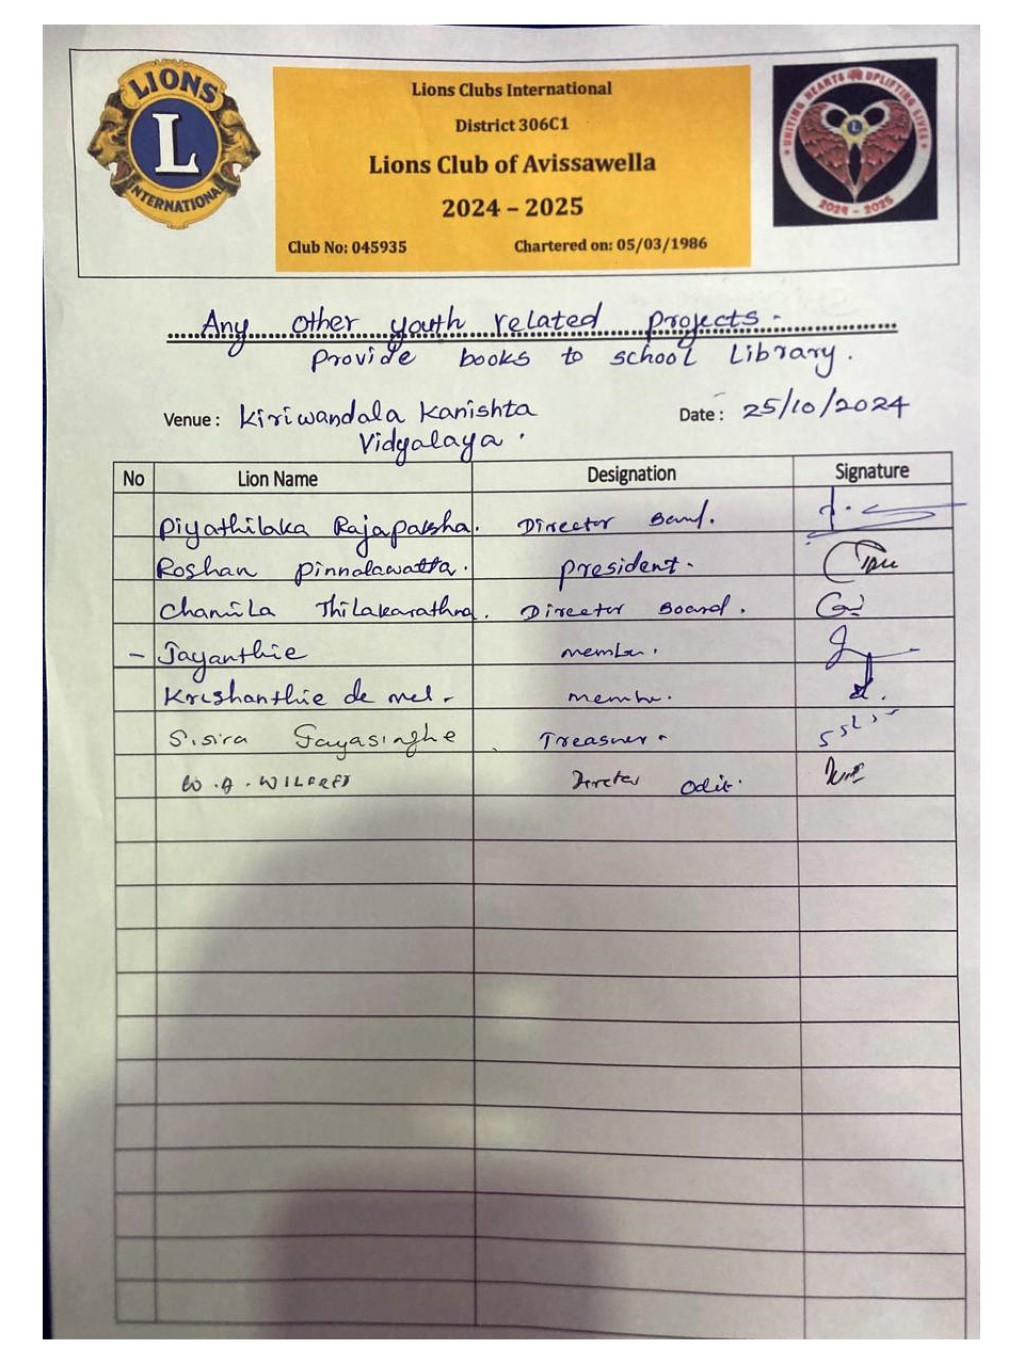 LIONS
L
INTERNATIONAL
Lions Clubs International
District 306C1
Lions Club of Avissawella
2024 – 2025
Club No: 045935 Chartered on: 05/03/1986
UNITING HEARTS UPLIFTING LIVES
2024 - 2025
Any other youth related projects.
provide books to school Library.
Venue : Kiriwandala Kanishta Date : 25/10/2024
Vidyalaya.
No Lion Name Designation Signature
Piyathilaka Rajapaksha. Director
Roshan Pinnalawatta. president.
Chamila Thilakarathna. Director Board.
– Jayanthie member.
Krishanthie de mel - membe.
Sisira Jayasinghe Treasurer
W.A. WILFRED